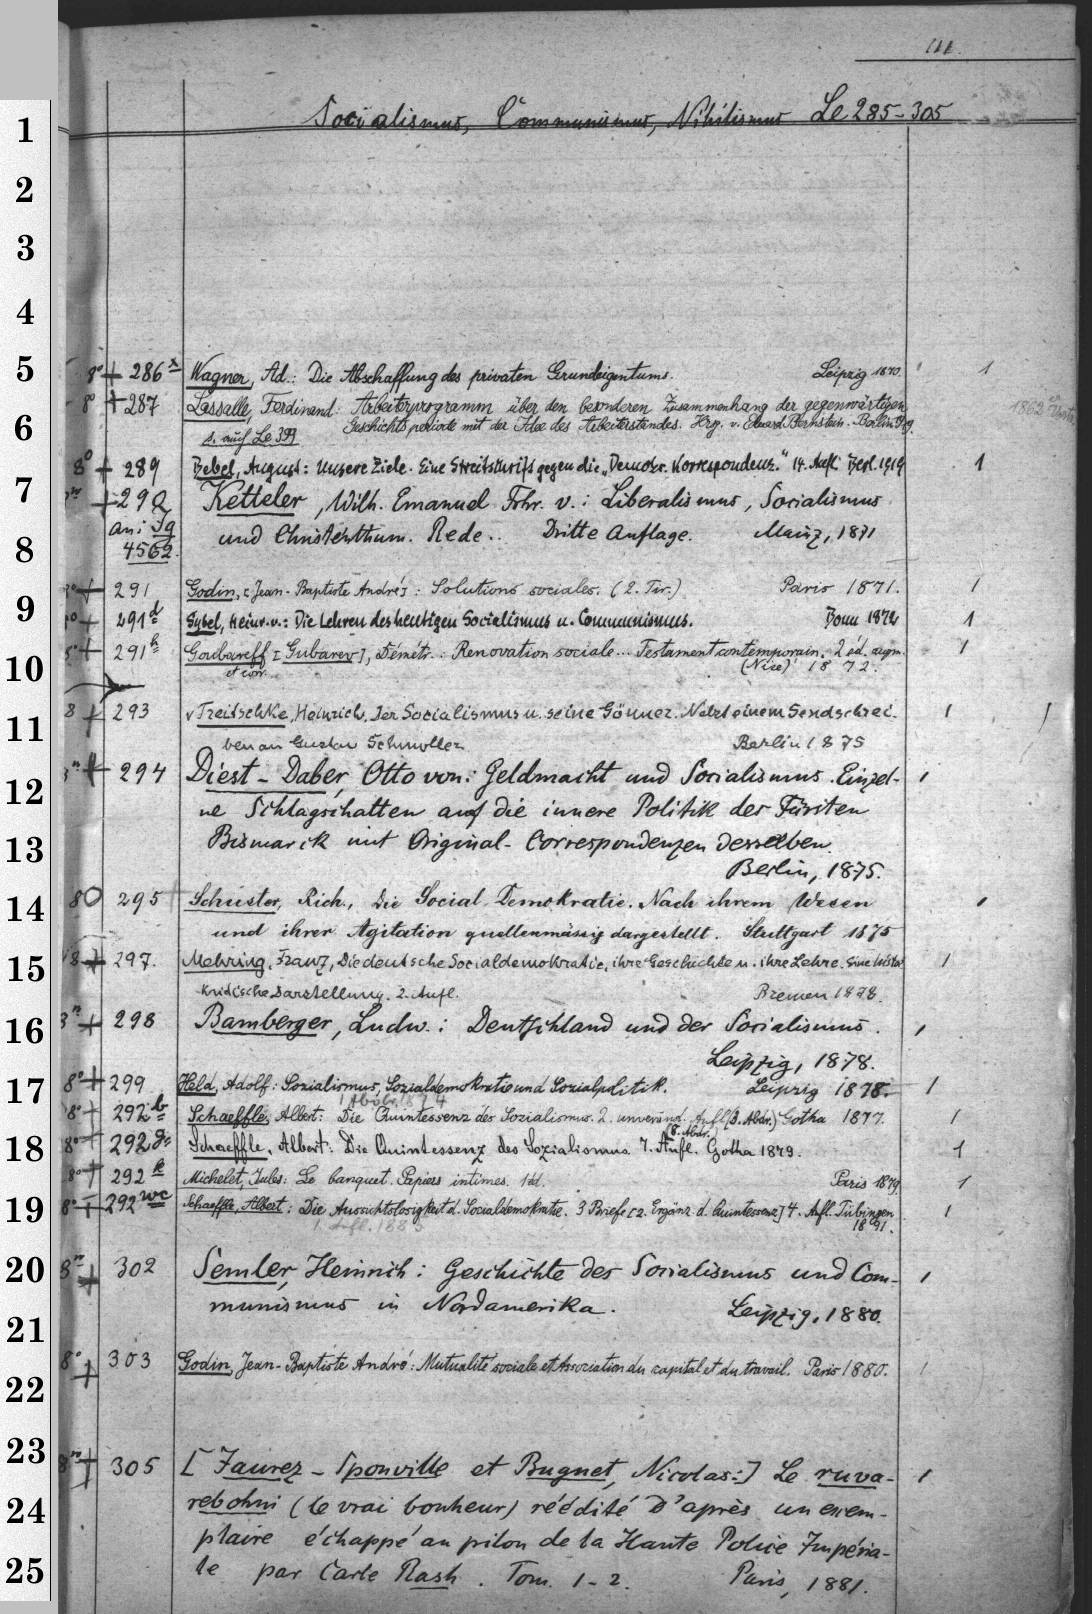 Socialismus, Communismus, Nihilismus Le 285-305
1
2
3
4
5
8° + 286x Wagner, Ad.: Die Abschaffung des privaten Grundeigentums. Leipzig 1870. 1
8° + 287 Lassalle, Ferdinand: Arbeiterprogramm über den besonderen Zusammenhang der gegenwärtigen
6
s. auf Le 399 Geschichtsperiode mit der Idee des Arbeiterstandes. Hrg. v. Eduard Bernstein. Berlin
8° + 289 Bebel, August: Unsere Ziele. Eine Streitschrift gegen die „Demokr. Korrespondenz." 14. Aufl. Berl. 1919 1
7
+ 290 Ketteler, Wilh. Emanuel Frhr. v.: Liberalismus, Socialismus
an: Fg
und Christenthum. Rede.. Dritte Auflage. Mainz, 1871
8
4562.
+ 291 Godin, [Jean-Baptiste André]: Solutions sociales. (2. Tir.) Paris 1871. 1
9
+ 291d Sybel, Heinr. v.: Die Lehren des heutigen Socialismus u. Communismus. Bonn 1872 1
+ 291h Goubareff [Gubarev], Démétr.: Renovation sociale... Testament contemporain. 2 éd. augm. 1
10
et corr. (Nice) 1872.
8 + 293 v Treitschke, Heinrich, Der Socialismus u. seine Gönner. Nebst einem Sendschrei- 1
11
ben an Gustav Schmoller Berlin 1875
+ 294 Diest-Daber, Otto von: Geldmacht und Socialismus. Einzel- 1
12
ne Schlagschatten auf die innere Politik des Fürsten
13
Bismarck mit Original-Correspondenzen desselben.
Berlin, 1875.
14
80 295 Schuster, Rich., Die Social-Demokratie. Nach ihrem Wesen
und ihrer Agitation quellenmässig dargestellt. Stuttgart 1875
15
8 + 297. Mehring, Franz, Die deutsche Socialdemokratie, ihre Geschichte u. ihre Lehre. Eine histor. 1
kritische Darstellung. 2. Aufl. Bremen 1878.
16
+ 298 Bamberger, Ludw.: Deutschland und der Socialismus. 1
Leipzig, 1878.
17
8° + 299 Held, Adolf: Sozialismus, Sozialdemokratie und Sozialpolitik. Leipzig 1878. 1
8° + 292b Schaeffle, Albert: Die Quintessenz des Sozialismus. 2. unveränd. Aufl. (3. Abdr.) Gotha 1877. 1
(8. Abdr.)
18
8° + 292g Schaeffle, Albert: Die Quintessenz des Sozialismus. 7. Aufl. Gotha 1879. 1
8° + 292k Michelet, Jules: Le banquet. Papiers intimes. 1 éd. Paris 1879 1
19
8° + 292wc Schaeffle, Albert: Die Aussichtslosigkeit d. Socialdemokratie. 3 Briefe [z. Ergänz. d. Quintessenz] 4. Aufl. Tübingen 1
1. Aufl. 1885 1891.
20
+ 302 Semler, Heinrich: Geschichte des Socialismus und Com- 1
munismus in Nordamerika. Leipzig, 1880.
21
8° + 303 Godin, Jean-Baptiste André: Mutualité sociale et Association du capital et du travail. Paris 1880. 1
22
23
+ 305 [Jaurez-Sponville et Bugnet, Nicolas:] Le ruva- 1
24
rebohni (le vrai bonheur) réédité d'après un exem-
plaire échappé au pilon de la Haute Police Impéria-
25
le par Carle Rash. Tom. 1-2. Paris, 1881.